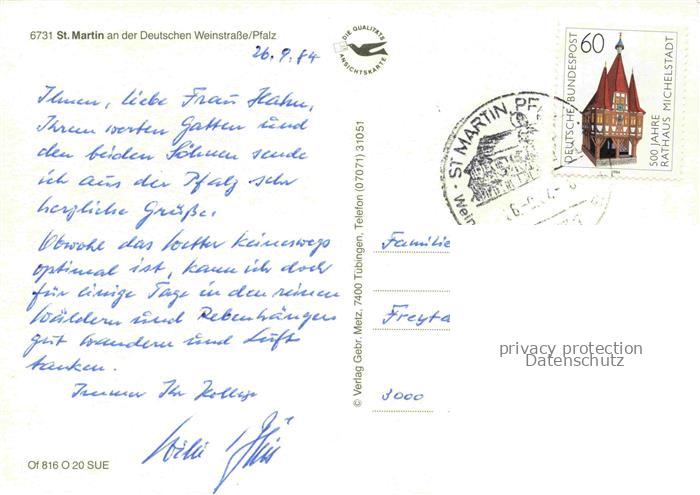 6731 St. Martin an der Deutschen Weinstraße/Pfalz
26.9.84
Ihnen, liebe Frau Hahn,
Ihrem werten Gatten und
den beiden Söhnen sende
ich aus der Pfalz sehr
herzliche Grüße.
Obwohl das Wetter keineswegs
optimal ist, kann ich doch
für einige Tage in den reinen
Wäldern und Rebenhängen
gut wandern und Luft
tanken.
Immer Ihr
Of 816 O 20 SUE
DIE QUALITÄTS
ANSICHTSKARTE
© Verlag Gebr. Metz, 7400 Tübingen, Telefon (07071) 31051
ST. MARTIN, PF
Wein
DEUTSCHE BUNDESPOST
60
500 JAHRE
RATHAUS MICHELSTADT
1984
Familie
Freyta
3000
privacy protection
Datenschutz